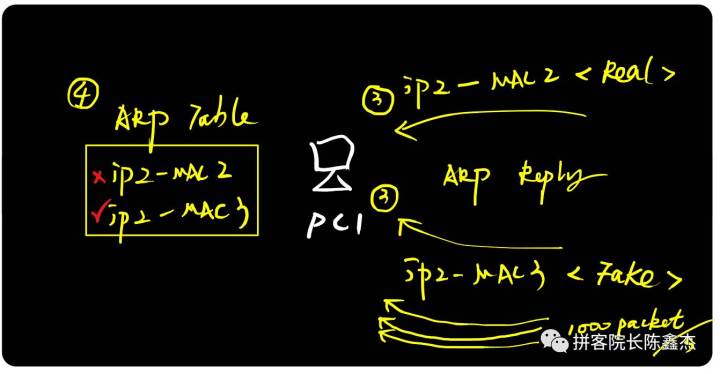 ④
ARP Table
×ip2-MAC2
✓ip2-MAC3
PC1
③ ip2-MAC2 <Real>
ARP Reply
③
ip2-MAC3 <Fake>
1000 packet
拼客院长陈鑫杰